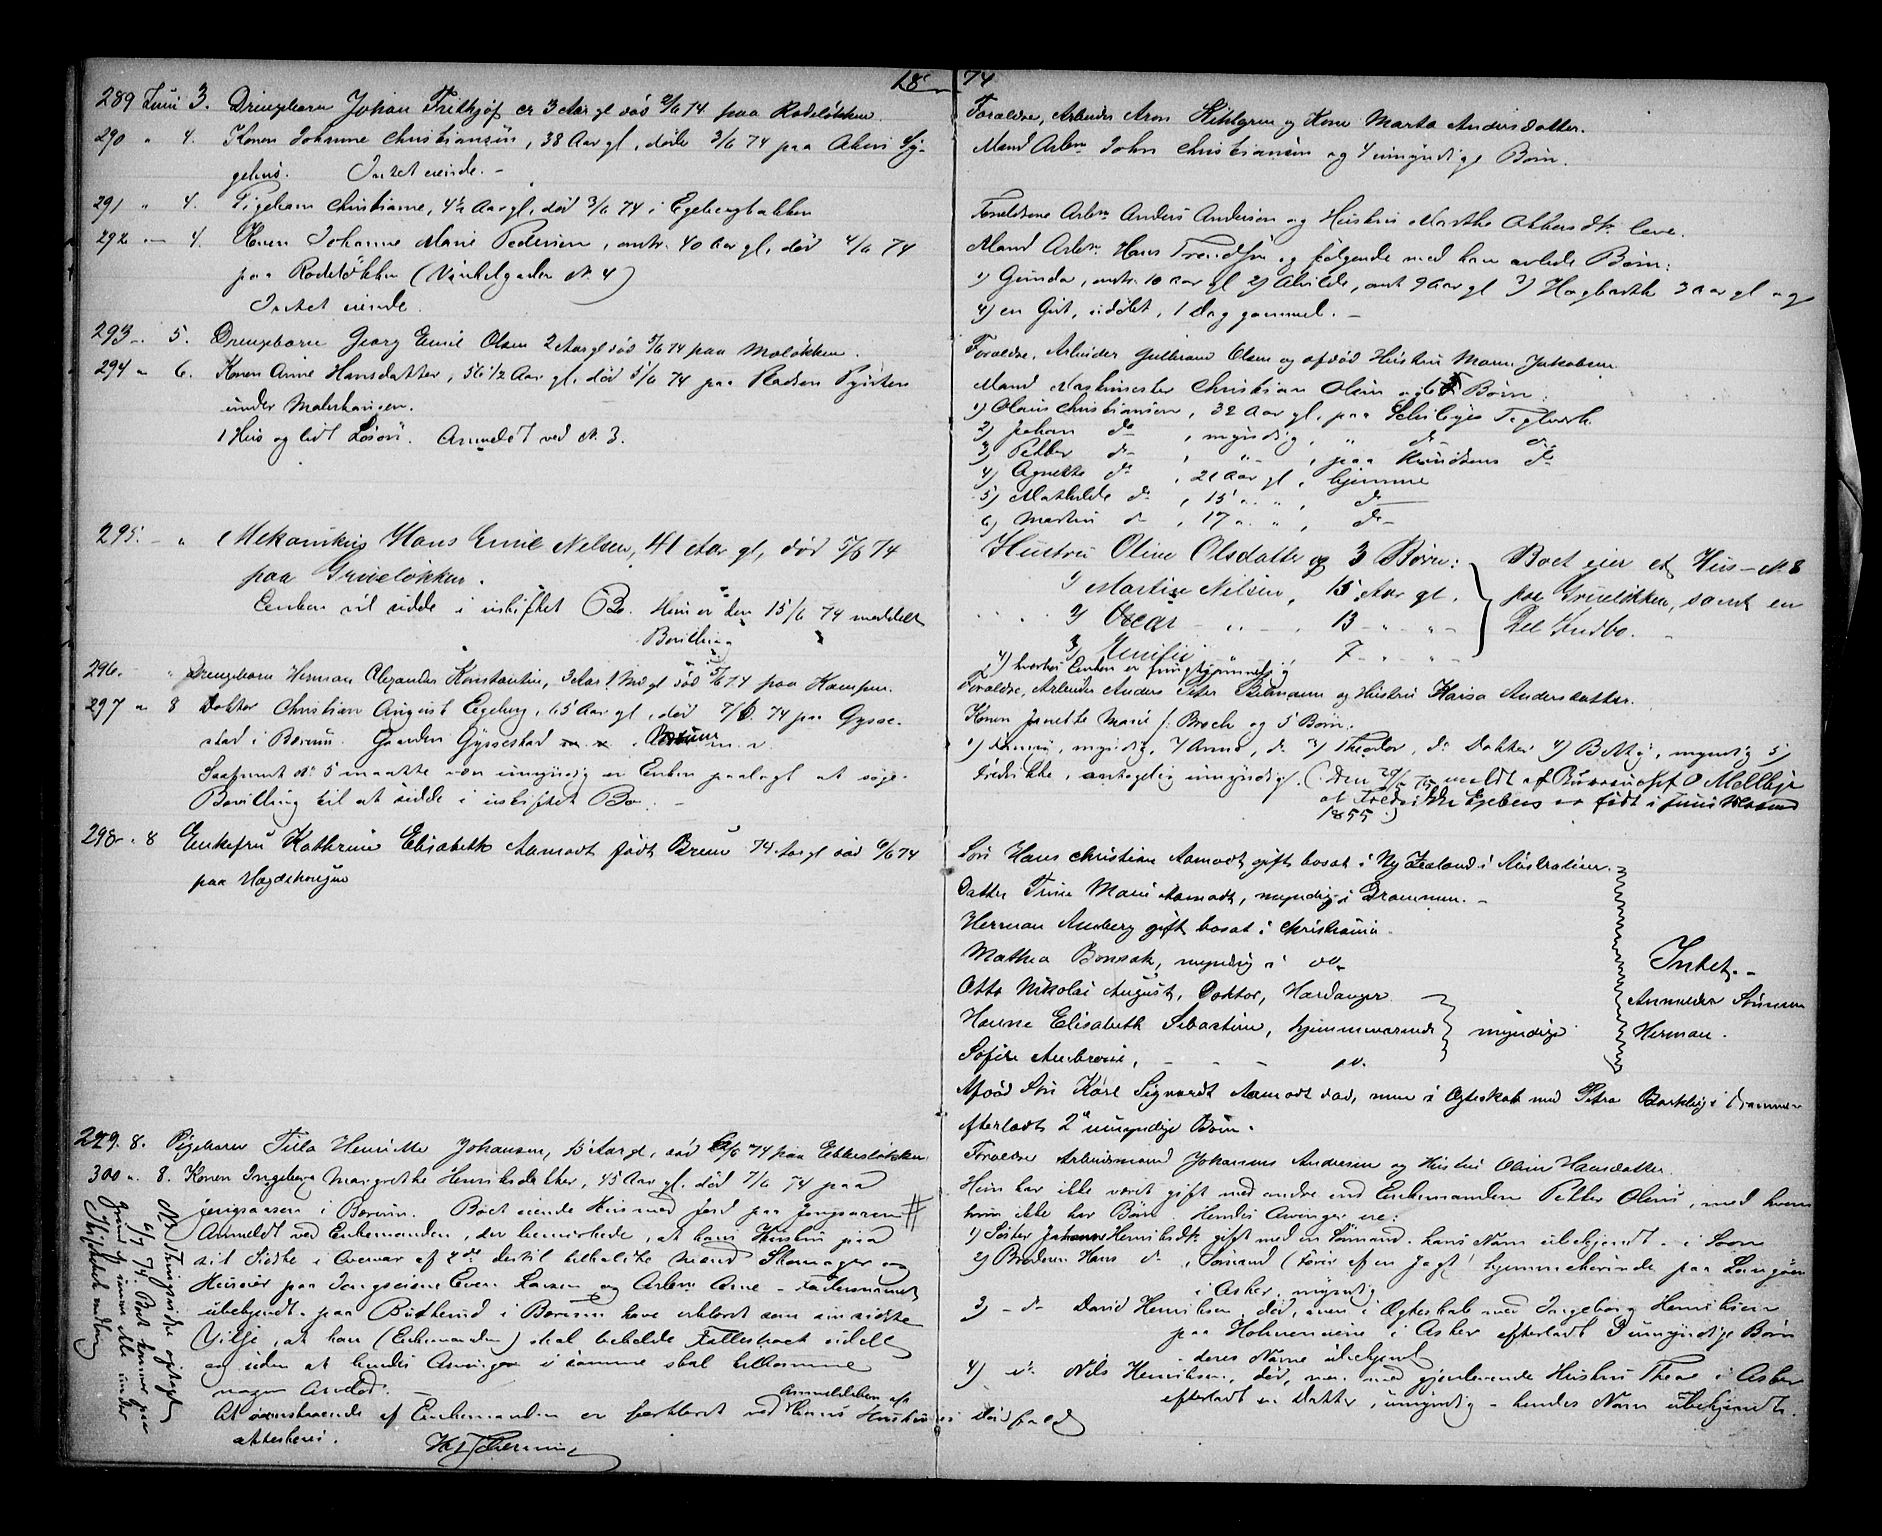 18 74
289 Juni 3. Drengebarn Johan Frithjof er 3 Aar gl død 2/6 74 paa Rodeløkken
Forældre, Arbeider Aron Kihlgren og Kone Marta Andersdatter.
290 " 4. Konen Johanne Christiansen, 38 Aar gl, døde 3/6 74 paa Akers Sy-
gehus. Intet eiende. -
Mand Arbm John Christiansen og 4 umyndige Børn.
291 " 4. Pigebarn Christiane, 4½ Aar gl, død 3/6 74 i Egebergbakken
Forældrene Arbm Anders Andersen og Hustru Marthe leve.
292 " 4. Konen Johanne Marie Pedersen, omtr. 40 Aar gl, død 4/6 74
paa Rodeløkken (Vinkelgaden N. 4)
Intet eiende.
Mand Arbm Hans og følgende med ham avlede Børn:
1) Gunda, omtr. 10 Aar gl 2) Alvilde, omt 9 Aar gl 3) Hagbarth 3 Aar gl og
4) en Gut, udøbt, 1 Dag gammel. -
293 - 5. Drengebarn Georg Emil Olsen 2 Aar gl død 5/6 74 paa Moløkken.
Forældre, Arbeider Gulbrand Olsen og afdød Hustru Maren Jakobsen
294 " 6. Konen Anne Hansdatter, 56 1/2 Aar gl, død 5/6 74 paa
under Malerhaugen.
1 Hus og lidt Løsøre. Anmeldt ved N. 3.
Mand Christian Olsen og 6 Børn:
1) Olaus Christiansen, 32 Aar gl. paa Teglværk
2) Johan do , myndig, " do do
3) Petter do , " , paa Knudsens do
4) Agnethe do , 21 Aar gl, hjemme
5) Mathilde do , 15 " " , do
6) Martin do , 17 " " , do
295. - " Mekanikus Hans Emil Nelsen, 41 Aar gl, død 5/6 74
paa Grüneløkken.
Enken vil sidde i uskiftet Bo. Hun er den 15/6 74 meddelt
Bevilling
Hustru Oline Olsdatter og 3 Børn:
1) Martin Nilsen, 15 Aar gl.
2) Oscar - " - , 13 - " -
3) - " - 7 - " -
4) hvorhos Enken er frugtsommelig
Boet eier et Hus N. 8
paa Grüneløkken, samt en
Del Indbo. -
296. " Drengebarn Herman Alexander Konstantin, 3 Aar 1 Md gl død 5/6 74 paa Kampen.
Forældre, Arbeider Anders Peter og Hustru Karisa Andersdatter.
297 " 8 Doktor Christian August Egeberg, 65 Aar gl, død 7/6 74 paa Gysse-
stad i Bærum. Gaarden Gyssestad i Bærum m. v.
Saafremt No 5 maatte være umyndig er Enken paalagt at søge
Bevilling til at sidde i uskiftet Bo. -
Konen Janette Marie f. Broch og 5 Børn.
1) Fanny, myndig, 2) Anna, do 3) Theodor, do Doktor 4) Betty, myndig 5)
Fredrikke, antagelig umyndig. (Den 29/5 75 meldt af
at Fredrikke Egeberg er født i Juni
1855.)
298 " 8 Enkefru Kathrine Elisabeth Aamodt født Bruun 74 Aar gl død 6/6 74
paa Hagdehougen
Søn Hans Christian Aamodt gift, bosat i Ny Zealand i Australien.
Datter Trine Marie Aamodt, myndig i Drammen. -
Herman Amberg gift bosat i Christiania.
Mathea Bonsak, myndig i do
Otto Nikolai August, Doktor, Hardanger
Hanna Elisabeth Sebastine, hjemmeværende
Sofie Ambrosia, - - - do.
myndige
Intet. -
Anmelder Sønnen
Herman.
Afdød Søn Karl Sigvardt Aamodt død, men i Ægteskab med Petra i Drammen
efterladt 2 umyndige Børn.
299. 8. Pigebarn Tilla Henriette Johansen, Aar gl, død 6/6 74 paa Ekkersløkken
Forældre Arbeidsmand Johannes Andersen og Hustru Oline Hansdatter.
300 " 8. Konen Ingeborg Margrethe Henriksdatter, 45 Aar gl. død 7/6 74 paa
i Bærum. Boet eiende Hus med Jord paa #
Anmeldt ved Enkemanden, der bemærkede, at hans Hustru paa
sit Sidste i Overvær af 2de dertil tilkaldte Mænd Skomager og
Husmand paa Even Larsen og Arbm Arne - Fadernavnet
ubekjendt - paa i Bærum have erklæret som sin sidste
Vilje, at han (Enkemanden) skal beholde Fællesboet udelt
og uden at hendes Arvinger i samme skal tilkomme
nogen Arvelod. -
At ovenstaaende af Enkemanden er forklaret ved Anmeldelsen af hans Hustrues Dødsfald
attesteres.
Hun har ikke været gift med andre end Enkemanden Petter Olsen, med hvem
hun ikke har Børn. Hendes Arvinger ere:
1) Søster Johanne Henriksdtr gift med en Sømand, hans Navn ubekjendt - i
2) Broderen Hans do , Sømand (Fører af en Jagt) hjemmehørende paa Langøen
i Asker, myndig
3) - do David Henriksen, død, men i Ægteskab med Ingeborg Henriksen
paa i Asker efterladt 3 umyndige Børn
- deres Navne ubekjendt
4) do Nils Henriksen, død, men med gjenlevende Hustru Thea i Asker
efterladt en Datter, umyndig - hendes Navn ubekjendt.